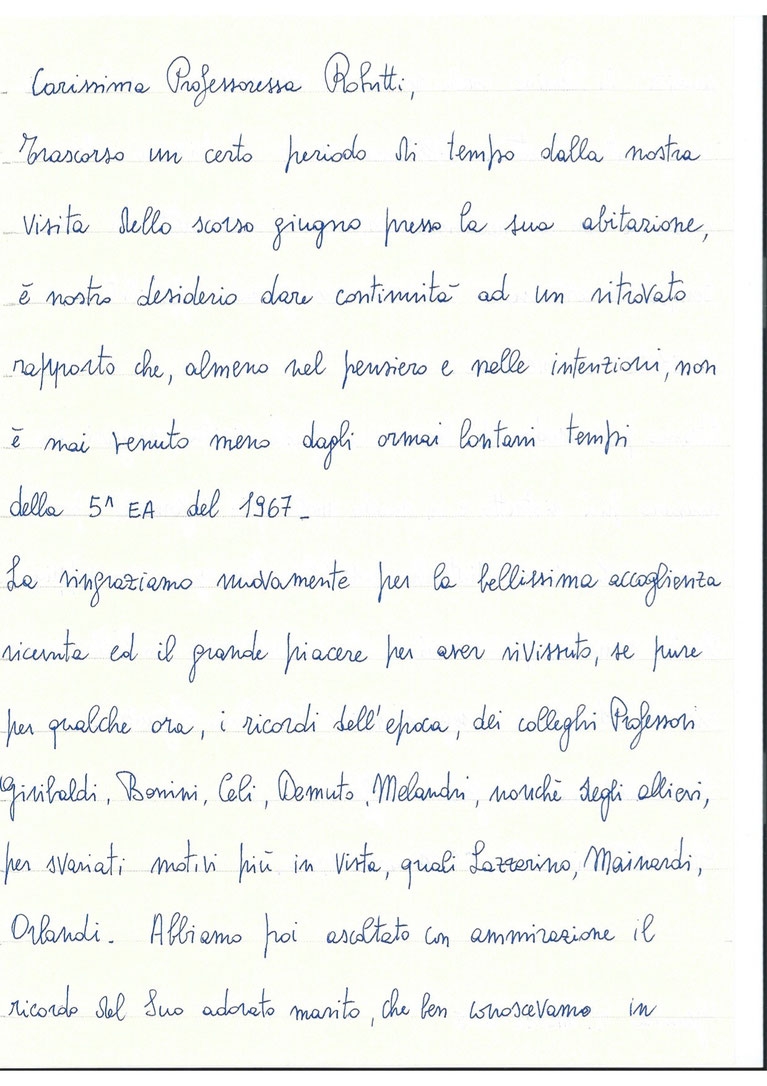 Carissima Professoressa Robutti,
Trascorso un certo periodo di tempo dalla nostra
visita dello scorso giugno presso la sua abitazione,
è nostro desiderio dare continuità ad un ritrovato
rapporto che, almeno nel pensiero e nelle intenzioni, non
è mai venuto meno dagli ormai lontani tempi
della 5^ EA del 1967_
La ringraziamo nuovamente per la bellissima accoglienza
ricevuta ed il grande piacere per aver rivissuto, se pure
per qualche ora, i ricordi dell'epoca, dei colleghi Professori
Giribaldi, Bonini, Celi, Demuto, Melandri, nonchè degli allievi,
per svariati motivi più in vista, quali Lazzerino, Mainardi,
Orlandi. Abbiamo poi ascoltato con ammirazione il
ricordo del Suo adorato marito, che ben conoscevamo in